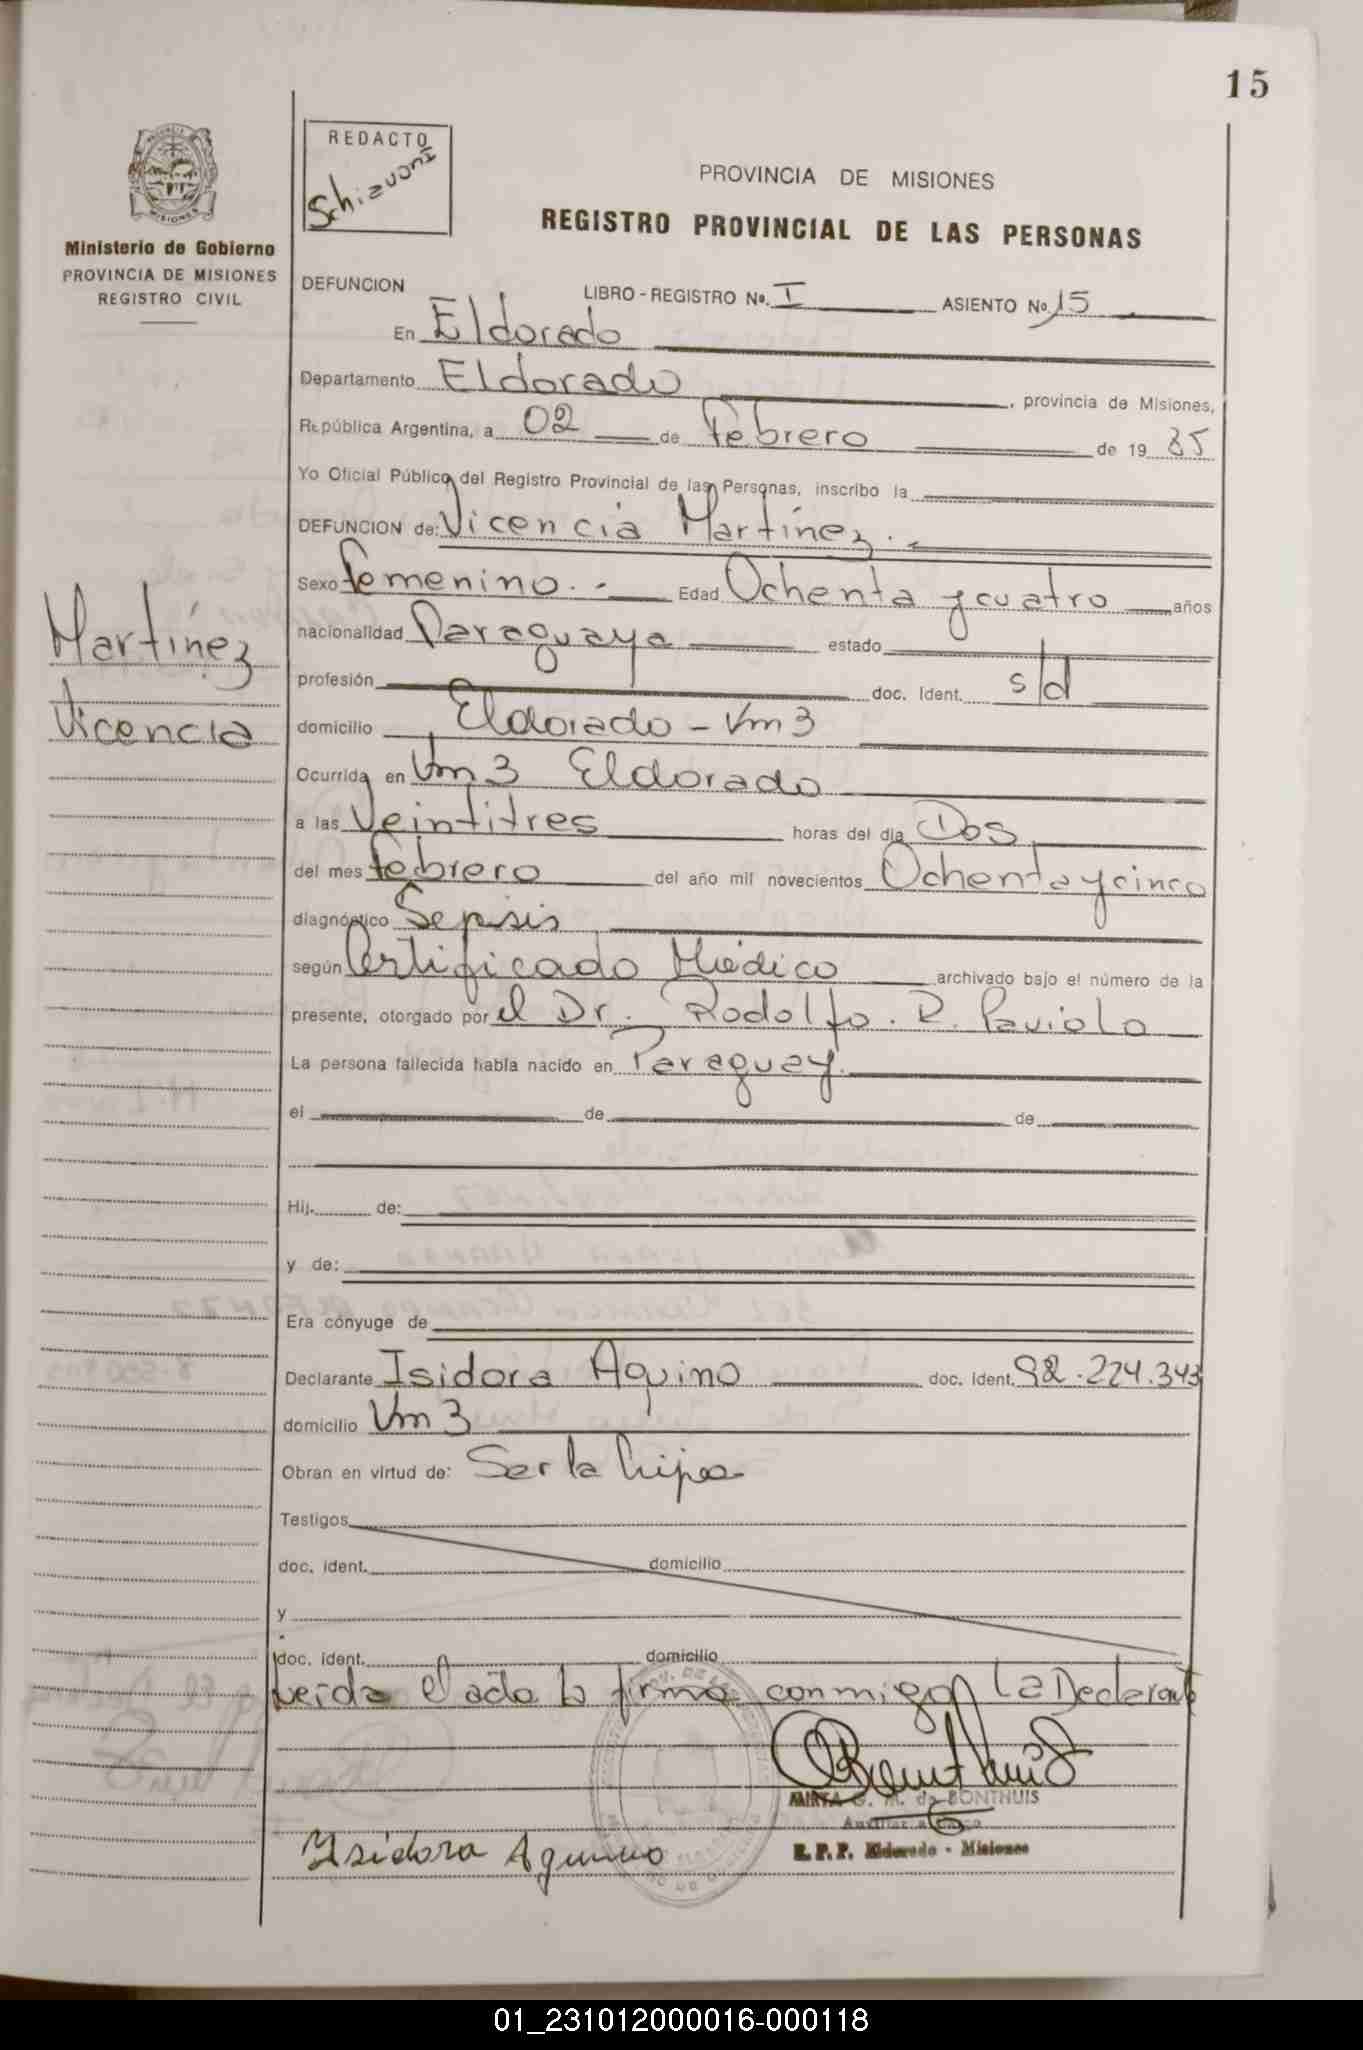 15
REDACTO
Schiavoni
Ministerio de Gobierno
PROVINCIA DE MISIONES
REGISTRO CIVIL
PROVINCIA DE MISIONES
REGISTRO PROVINCIAL DE LAS PERSONAS
DEFUNCION LIBRO-REGISTRO Nº. I ASIENTO Nº 15
En Eldorado
Departamento Eldorado, provincia de Misiones,
República Argentina, a 02 de Febrero de 19 85
Yo Oficial Público del Registro Provincial de las Personas, inscribo la
DEFUNCION de: Vicencia Martínez.
Sexo femenino. Edad Ochenta y cuatro años
nacionalidad Paraguaya estado
profesión doc. Ident. s/d
domicilio Eldorado - Km 3
Ocurrida en Km 3 Eldorado
a las Veintitres horas del día Dos
del mes febrero del año mil novecientos Ochenta y cinco
diagnóstico Sepsis
según Certificado Médico archivado bajo el número de la
presente, otorgado por el Dr. Rodolfo. R. Paviolo
La persona fallecida había nacido en Paraguay.
el de de
Hij. de:
y de:
Era cónyuge de
Declarante Isidora Aquino doc. ident. 92.224.343
domicilio Km 3
Obran en virtud de: Ser la hija
Testigos
doc. ident. domicilio
y
doc. ident. domicilio
Leída el acta la firma conmigo la Declarante
MIRTA G. M. de BONTHUIS
R. P. P. Eldorado - Misiones
Isidora Aquino
Martínez
Vicencia
01_231012000016-000118